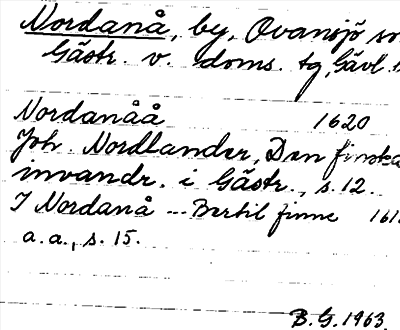 Nordanå, by, Ovansjö
Gästr. v. doms. tg, Gävl.
Nordanåå 1620
Joh. Nordlander, Den finska
invandr. i Gästr., s. 12.
I Nordanå --- Bertil finne 161
a. a., s. 15.
B. G. 1963.